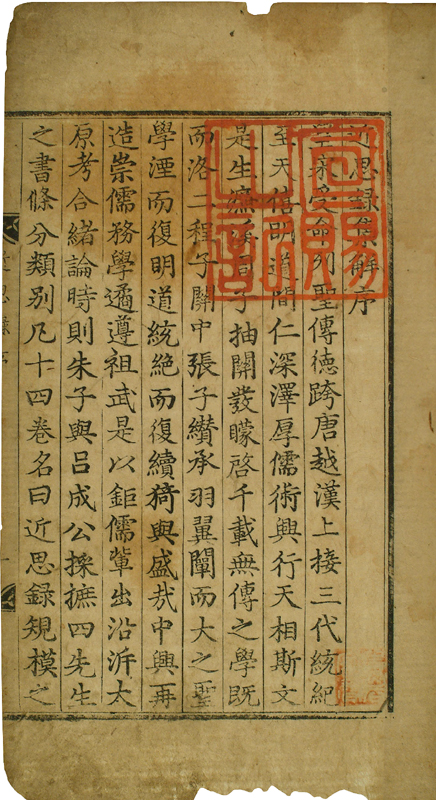 近思録集解序
皇家受命列聖傳德跨唐越漢上接三代統紀
至天僖明道間仁深澤厚儒術興行天相斯文
是生濂溪周子抽關發矇啓千載無傳之學既
而洛二程子關中張子纘承羽翼闡而大之聖
學湮而復明道統絶而復續猗與盛㢤中興再
造崇儒務學遹遵祖武是以鉅儒軰出沿泝太
原考合緒論時則朱子與吕成公採摭四先生
之書條分類別凡十四卷名曰近思録規模之
近思録序
宣賜之記